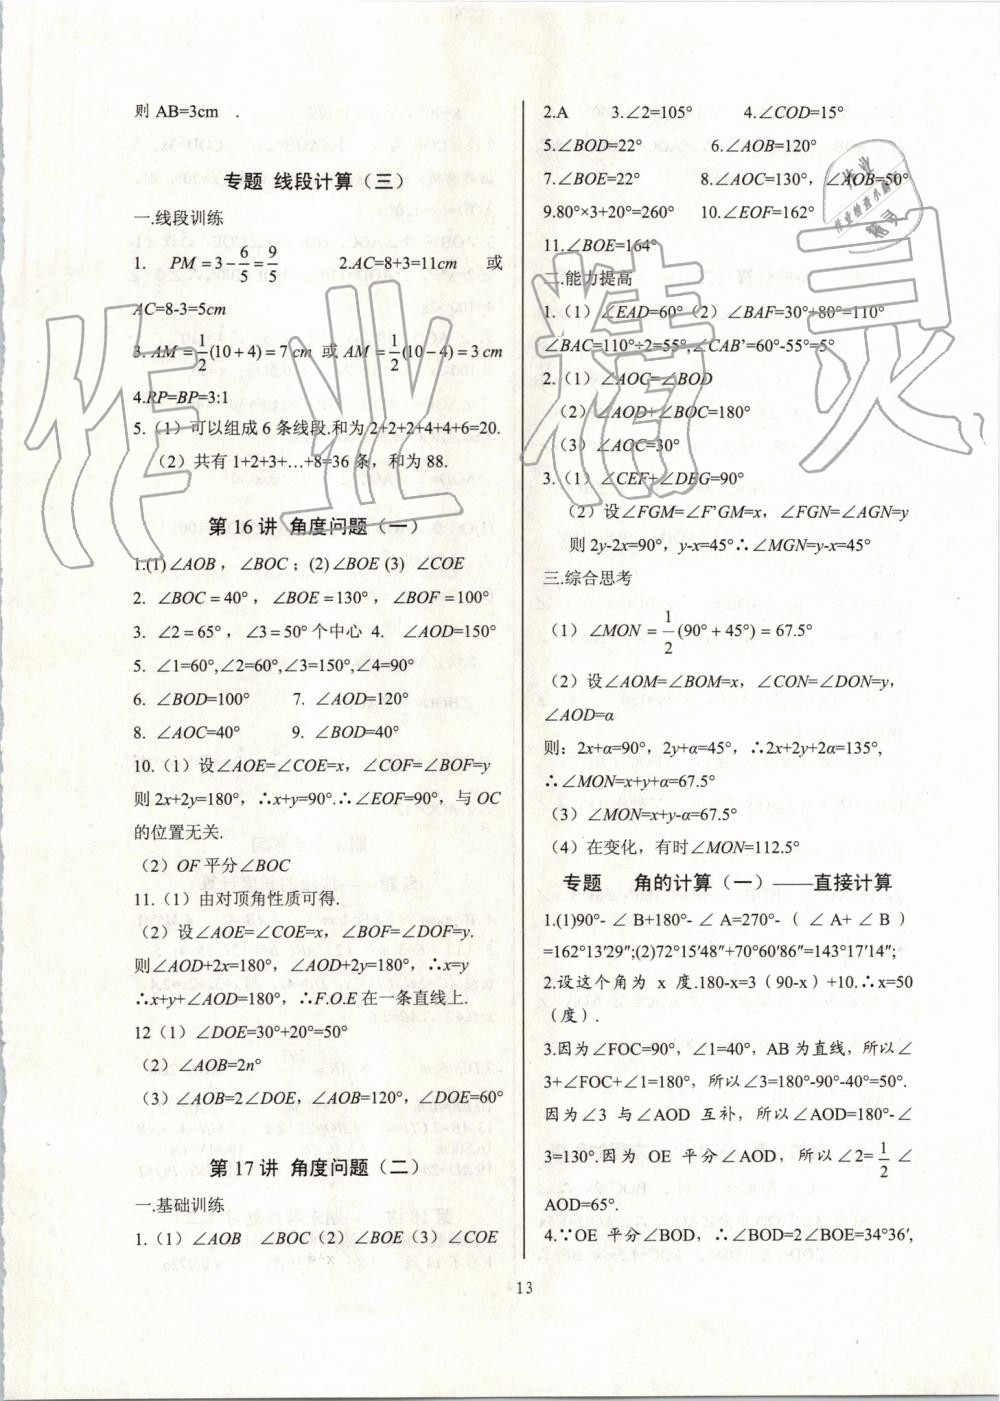 则 AB=3cm .
专题 线段计算（三）
一.线段训练
1. PM=3-6/5=9/5 2.AC=8+3=11cm 或
AC=8-3=5cm
3. AM=1/2(10+4)=7cm 或 AM=1/2(10-4)=3cm
4.RP=BP=3:1
5.（1）可以组成 6 条线段.和为 2+2+2+4+4+6=20.
（2）共有 1+2+3+…+8=36 条，和为 88.
第 16 讲 角度问题（一）
1.(1)∠AOB，∠BOC；(2)∠BOE (3) ∠COE
2. ∠BOC=40°，∠BOE=130°，∠BOF=100°
3. ∠2=65°，∠3=50°个中心 4. ∠AOD=150°
5. ∠1=60°,∠2=60°,∠3=150°,∠4=90°
6. ∠BOD=100° 7. ∠AOD=120°
8. ∠AOC=40° 9. ∠BOD=40°
10.（1）设∠AOE=∠COE=x，∠COF=∠BOF=y
则 2x+2y=180°，∴x+y=90°.∴∠EOF=90°，与 OC
的位置无关.
（2）OF 平分∠BOC
11.（1）由对顶角性质可得.
（2）设∠AOE=∠COE=x，∠BOF=∠DOF=y.
则∠AOD+2x=180°，∠AOD+2y=180°，∴x=y
∴x+y+∠AOD=180°，∴F.O.E 在一条直线上.
12（1）∠DOE=30°+20°=50°
（2）∠AOB=2n°
（3）∠AOB=2∠DOE，∠AOB=120°，∠DOE=60°
第 17 讲 角度问题（二）
一.基础训练
1.（1）∠AOB ∠BOC（2）∠BOE（3）∠COE
2.A 3.∠2=105° 4.∠COD=15°
5.∠BOD=22° 6.∠AOB=120°
7.∠BOE=22° 8.∠AOC=130°，∠AOB=50°
9.80°×3+20°=260° 10.∠EOF=162°
11.∠BOE=164°
二.能力提高
1.（1）∠EAD=60°（2）∠BAF=30°+80°=110°
∠BAC=110°÷2=55°,∠CAB'=60°-55°=5°
2.（1）∠AOC=∠BOD
（2）∠AOD+∠BOC=180°
（3）∠AOC=30°
3.（1）∠CEF+∠DEG=90°
（2）设∠FGM=∠F'GM=x，∠FGN=∠AGN=y
则 2y-2x=90°，y-x=45°∴∠MGN=y-x=45°
三.综合思考
（1）∠MON=1/2(90°+45°)=67.5°
（2）设∠AOM=∠BOM=x，∠CON=∠DON=y，
∠AOD=α
则：2x+α=90°，2y+α=45°，∴2x+2y+2α=135°,
∴∠MON=x+y+α=67.5°
（3）∠MON=x+y-α=67.5°
（4）在变化，有时∠MON=112.5°
专题 角的计算（一）——直接计算
1.(1)90°-∠B+180°-∠A=270°-（∠A+∠B）
=162°13′29″;(2)72°15′48″+70°60′86″=143°17′14″;
2.设这个角为 x 度.180-x=3（90-x)+10.∴x=50
（度）.
3.因为∠FOC=90°，∠1=40°，AB 为直线，所以∠
3+∠FOC+∠1=180°，所以∠3=180°-90°-40°=50°.
因为∠3 与∠AOD 互补，所以∠AOD=180°-∠
3=130°.因为 OE 平分∠AOD，所以∠2=1/2∠
AOD=65°.
4.∵OE 平分∠BOD，∴∠BOD=2∠BOE=34°36′,
13
作业精灵
作业
作业检查小助
精灵